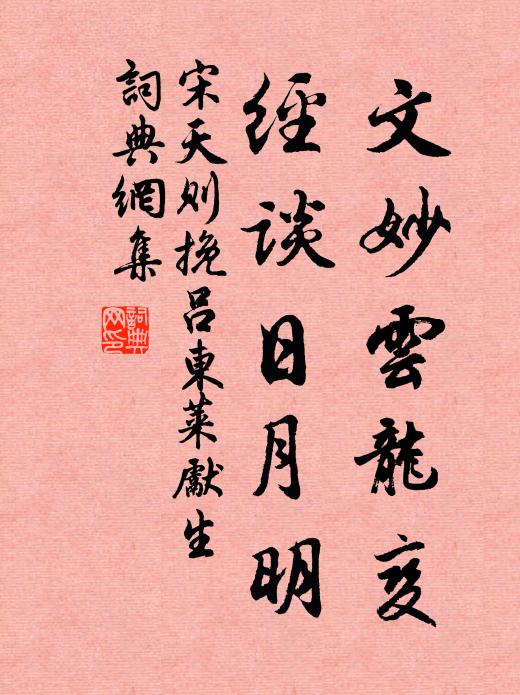 文妙雲龍变
經談日月明
宋天则挽吕東萊獻生
詞典網集
詞典网印